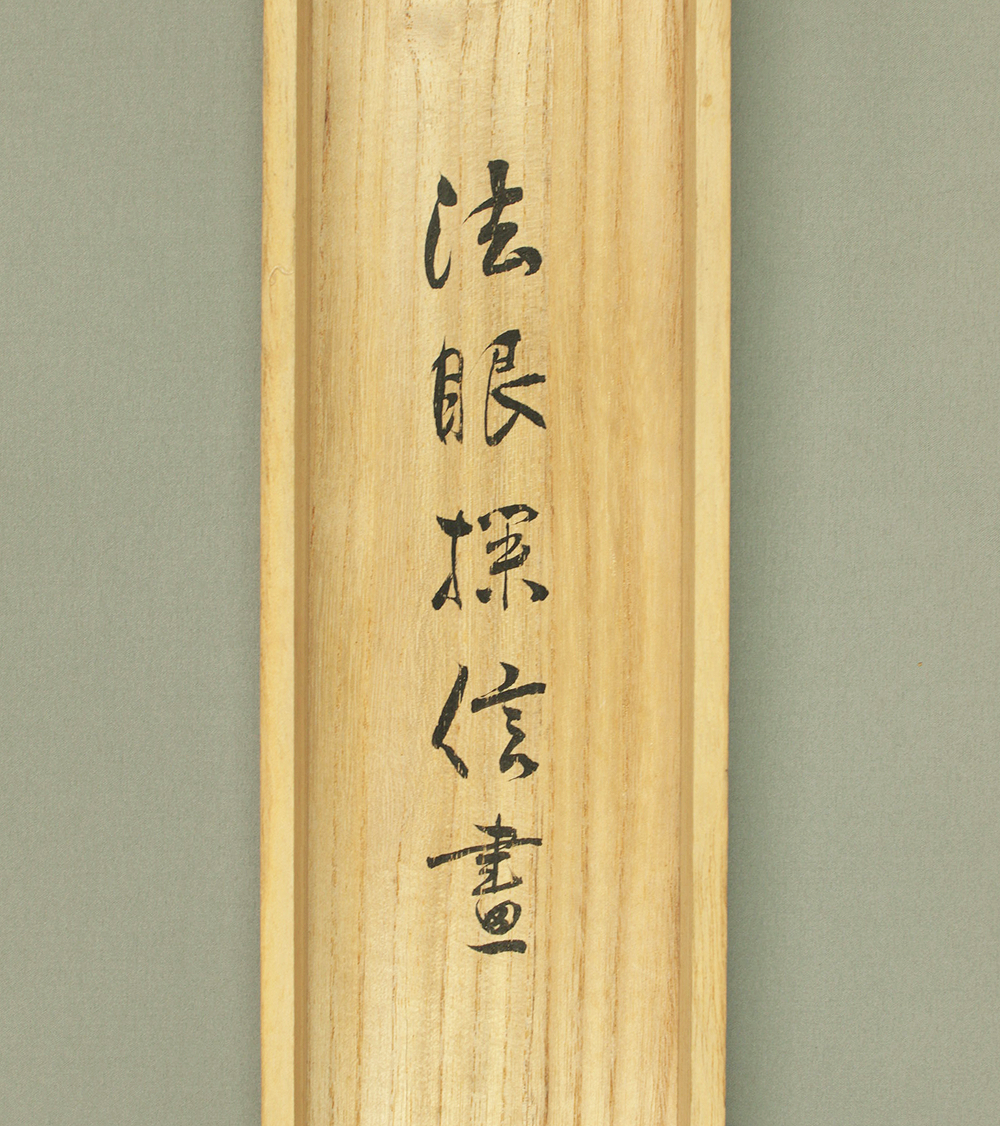 法眼探信畫